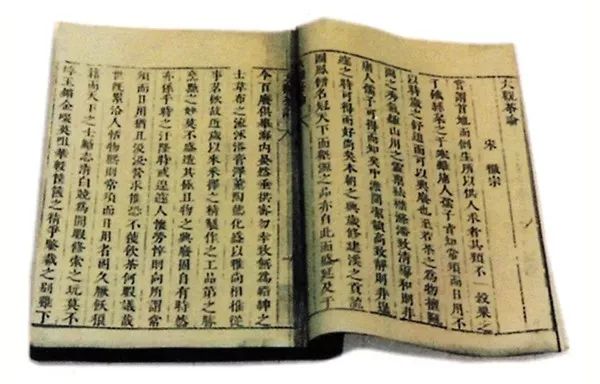 大觀茶論
宋 徽宗
嘗謂首地而倒生所以供人求者其類不一穀粟之
于饑絲枲之于寒雖庸人孺子皆知常須而日用不
以歲時之舒迫而可以興廢也至若茶之為物擅甌
閩之秀氣鍾山川之靈稟祛襟滌滯致清導和則非庸
人孺子可得而知矣中澹閒潔韻高致靜則非遑
遽之時可得而好尚矣本朝之興歲修建溪之貢龍
團鳳餅名冠天下而壑源之品亦自此而盛延及于
今百廢俱舉海内晏然垂拱密勿幸致無為縉紳之
士韋布之流沐浴膏澤薰陶德化盛以雅尚相推從
事茗飲故近歲以來採擇之精製作之工品第之勝
烹點之妙莫不盛造其極且物之興廢固自有時然
亦係乎時之汙隆時或遑遽人懷勞悴則向所謂常
須而日用猶且汲汲營求惟恐不獲飲茶何暇議哉
世既累洽人恬物熙則常須而日用者固久厭飫狼
籍而天下之士勵志清白競為閒暇修索之玩莫不
碎玉鏘金啜英咀華較篋笥之精爭鑒裁之別雖下